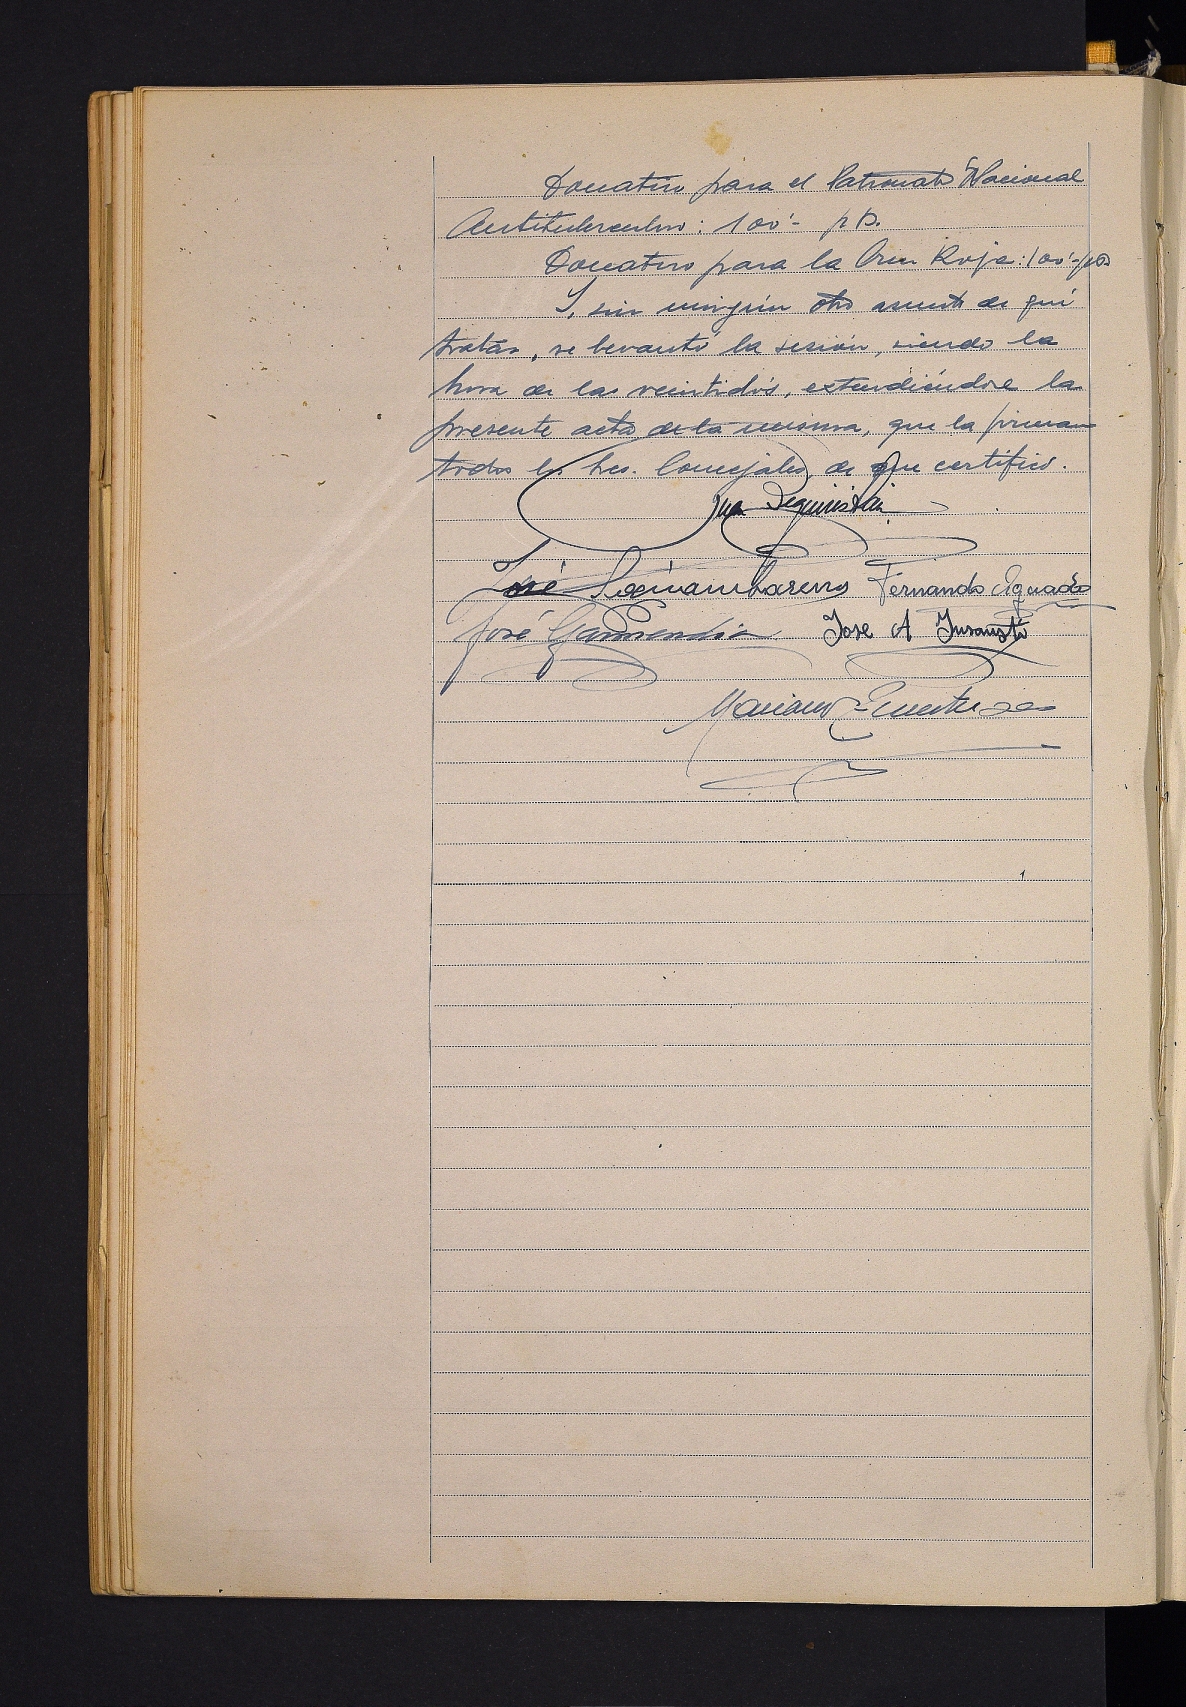 Donativo para el Patronato Nacional
Antituberculoso: 100'- pts.
Donativo para la Cruz Roja: 100'- pts
Y, sin ningún otro asunto de qué
tratar, se levantó la sesión, siendo la
hora de las veintidós, extendiéndose la
presente acta de la misma, que la firman
todos los Sres. Concejales, de que certifico.
Juan Deguiristain
José Fernando Aguado
José Garmendia Jose A Insausti
Mariano